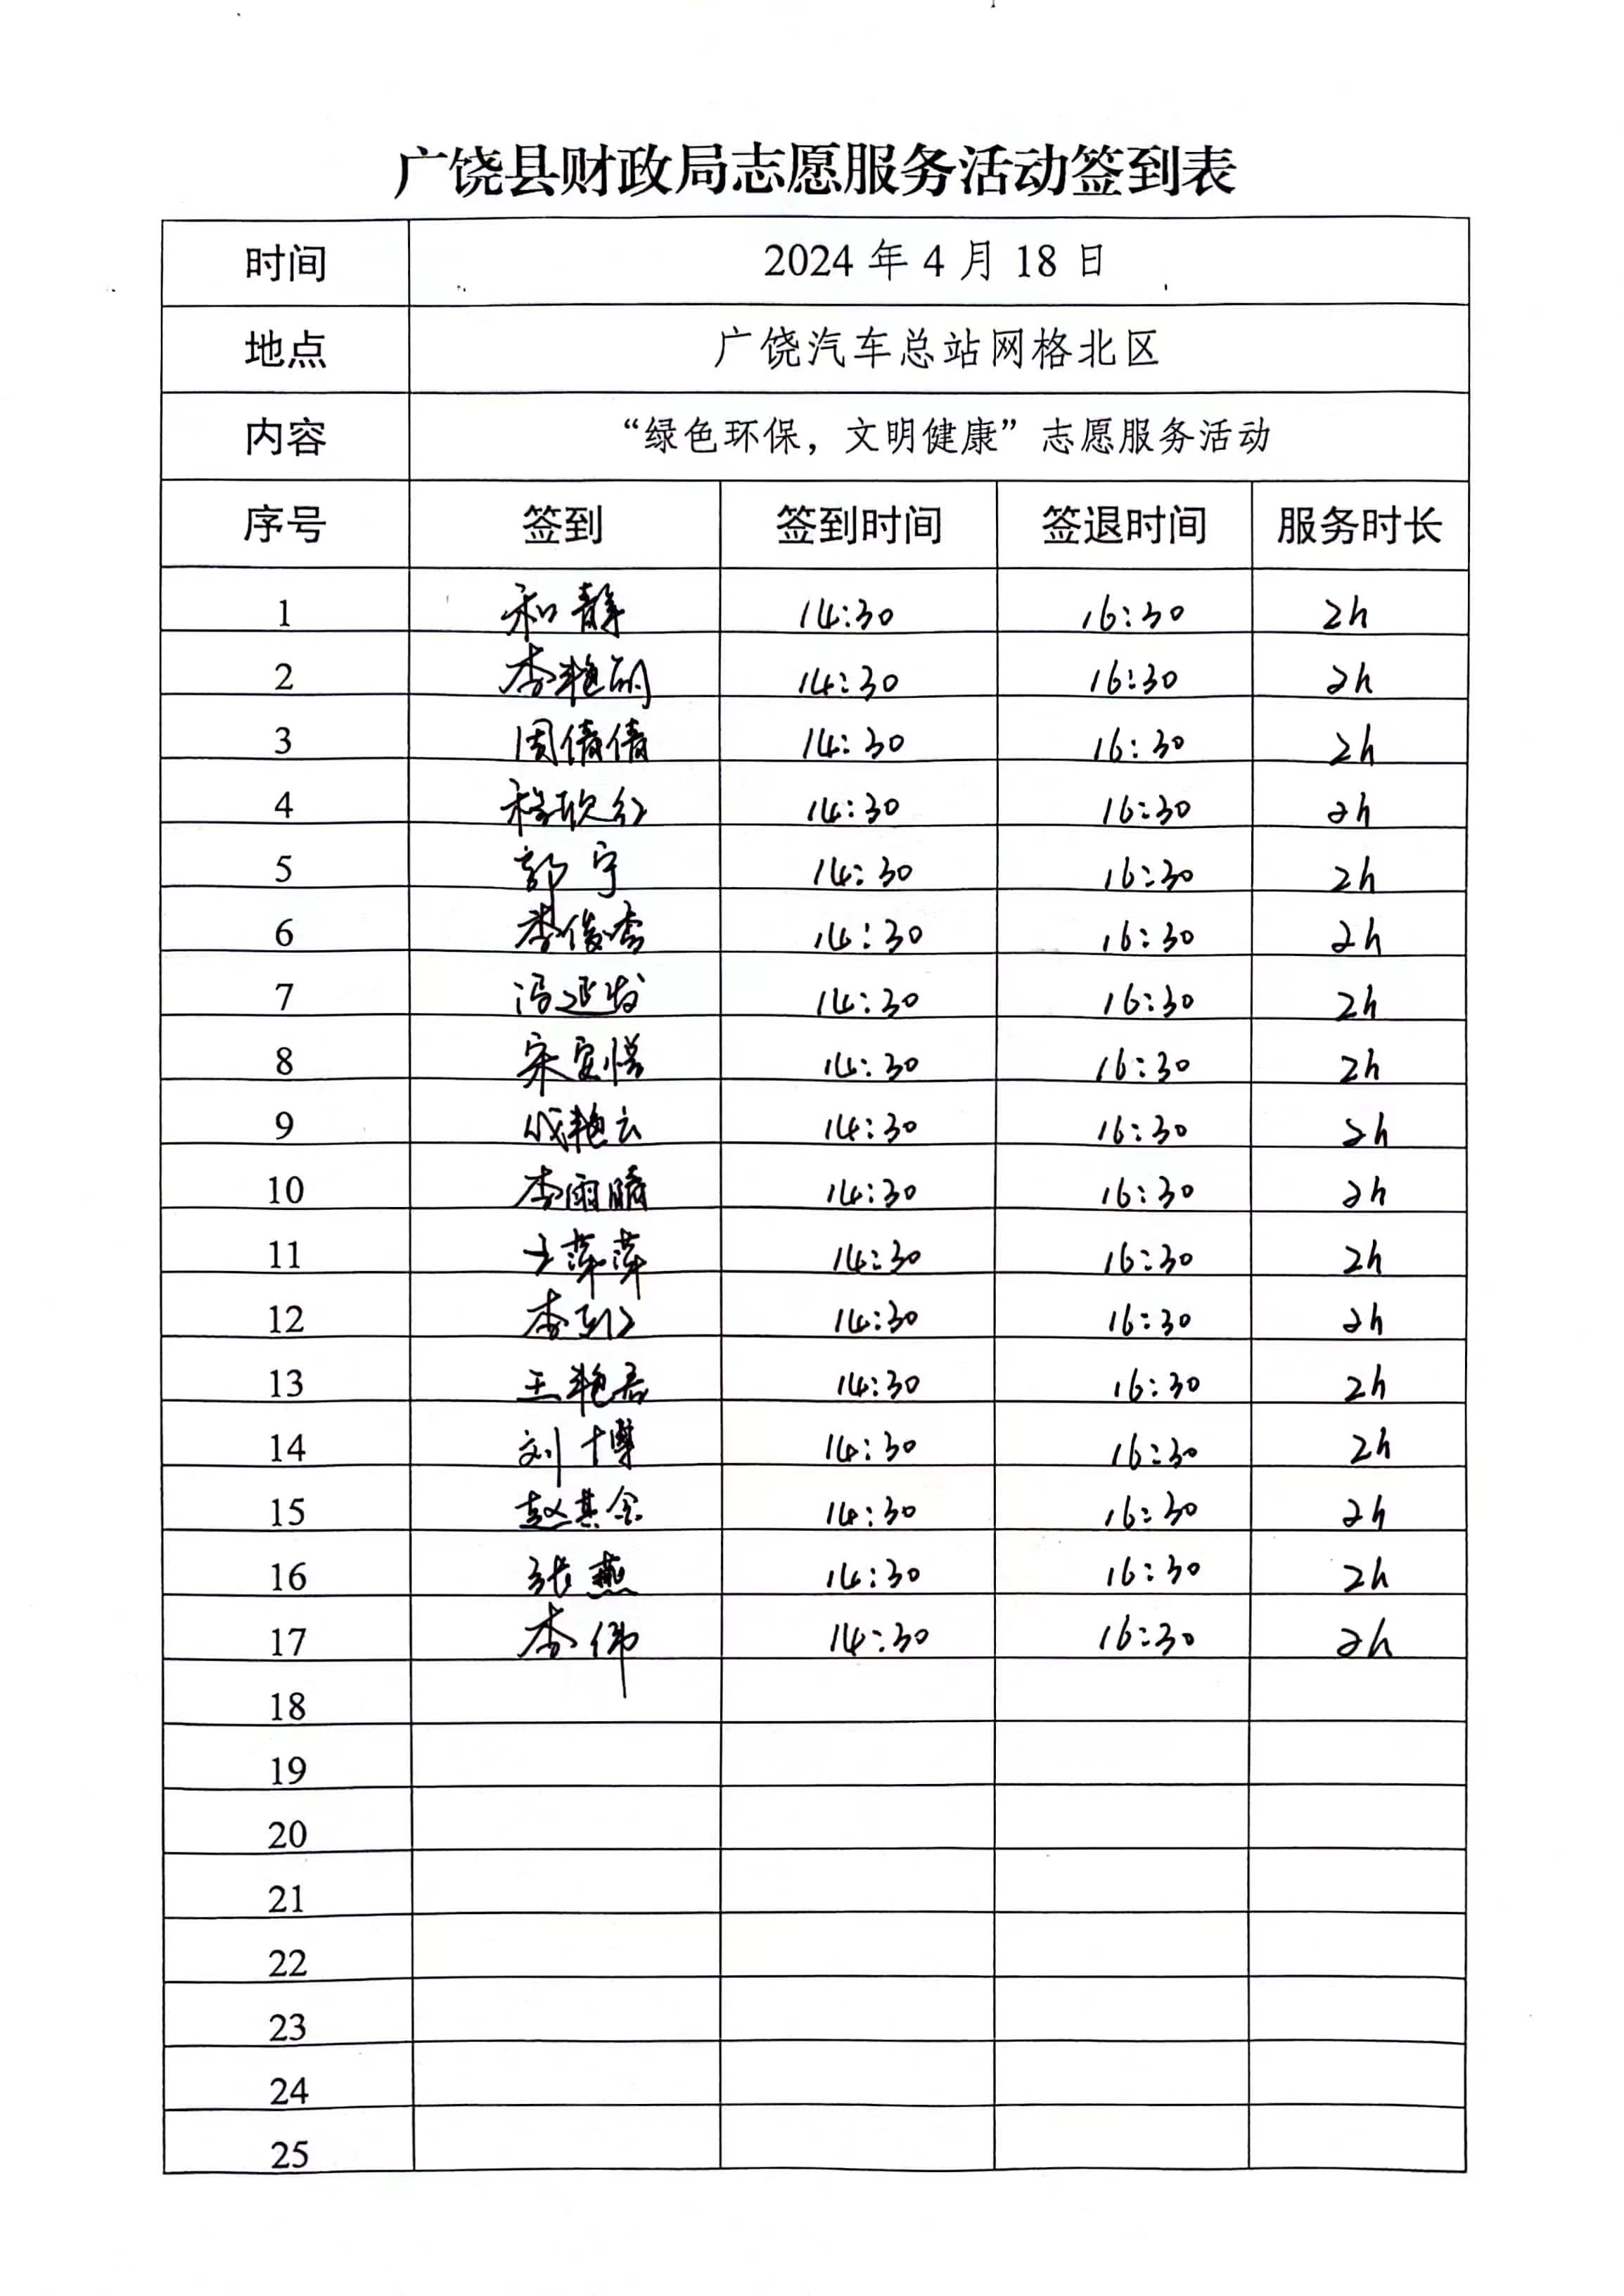 广饶县财政局志愿服务活动签到表
时间 2024 年 4 月 18 日
地点 广饶汽车总站网格北区
内容 “绿色环保，文明健康”志愿服务活动
序号 签到 签到时间 签退时间 服务时长
1 和静 14:30 16:30 2h
2 李艳丽 14:30 16:30 2h
3 周倩倩 14:30 16:30 2h
4 14:30 16:30 2h
5 郭宁 14:30 16:30 2h
6 李俊杰 14:30 16:30 2h
7 冯延 14:30 16:30 2h
8 宋 14:30 16:30 2h
9 成艳云 14:30 16:30 2h
10 李雨晴 14:30 16:30 2h
11 王萍萍 14:30 16:30 2h
12 李 14:30 16:30 2h
13 王艳君 14:30 16:30 2h
14 刘博 14:30 16:30 2h
15 赵其金 14:30 16:30 2h
16 张燕 14:30 16:30 2h
17 李伟 14:30 16:30 2h
18
19
20
21
22
23
24
25